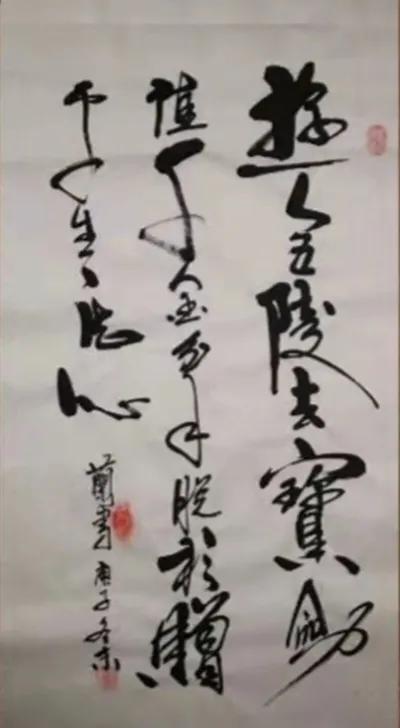 遊人五陵去寶劍
值千金分手脫相贈
平生一片心
蘭書庚子冬